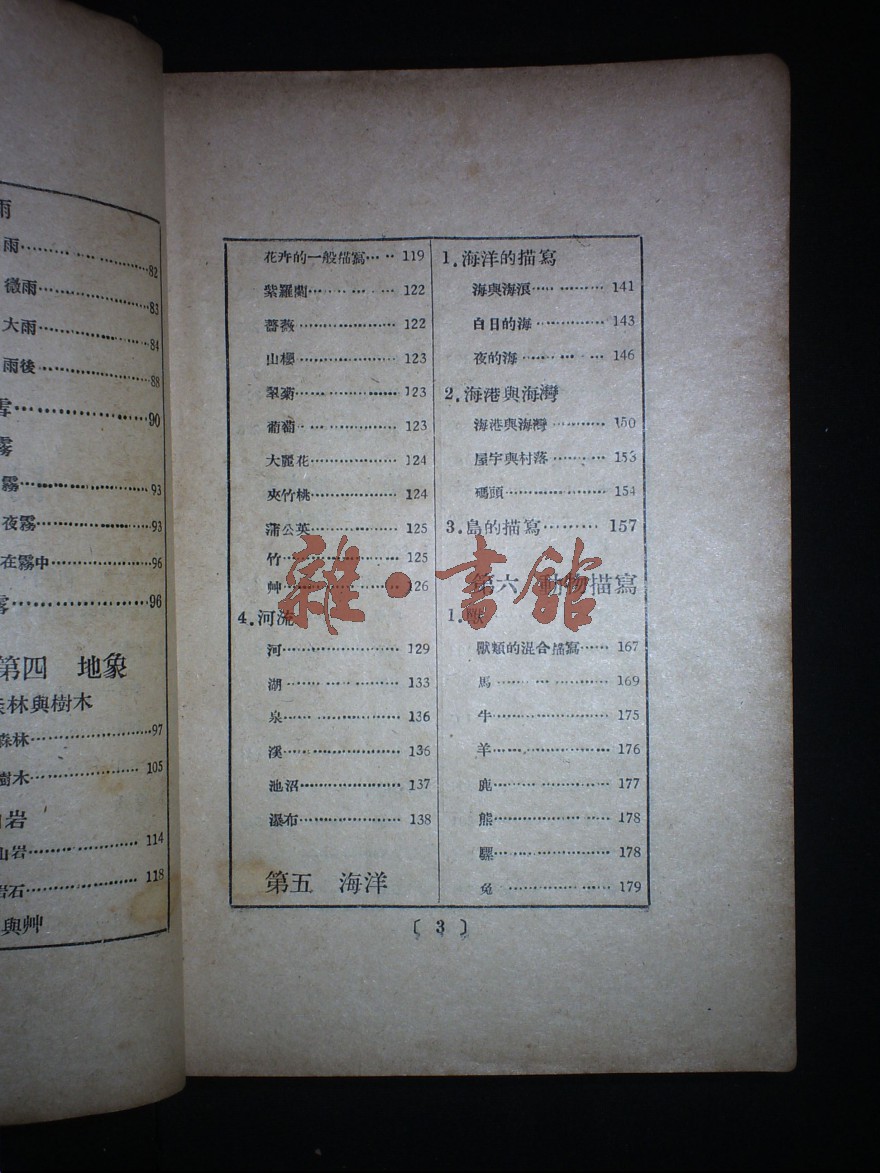 雨
雨……82
微雨……83
大雨……84
雨後……88
……90
霧
霧……93
夜霧……93
在霧中……96
……96
第四 地象
林與樹木
森林……97
樹木……105
山岩
山岩……114
岩石……118
與艸
花卉的一般描寫……119
紫羅蘭……122
薔薇……122
山櫻……123
翠菊……123
葡萄……123
大麗花……124
夾竹桃……124
蒲公英……125
竹……125
艸……126
4.河流
河……129
湖……133
泉……136
溪……136
池沼……137
瀑布……138
第五 海洋
1.海洋的描寫
海與海濱……141
白日的海……143
夜的海……146
2.海港與海灣
海港與海灣……150
屋宇與村落……153
碼頭……154
3.島的描寫……157
第六 動物描寫
1.獸
獸類的混合描寫……167
馬……169
牛……175
羊……176
鹿……177
熊……178
騾……178
兔……179
〔3〕
雜·書館